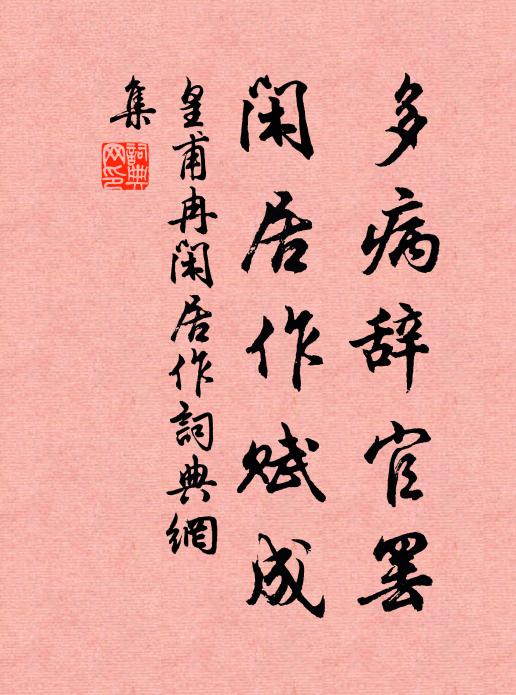 多病辞官罢
闲居作赋成
皇甫冉闲居作詞典網
集
詞典
网印